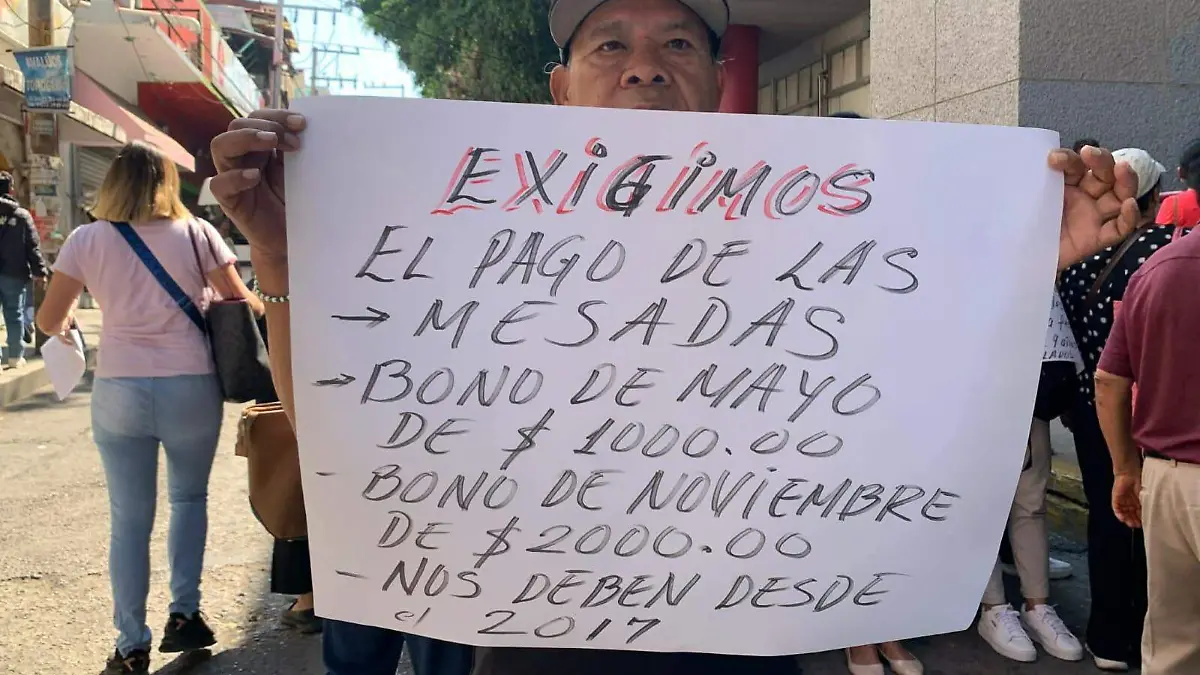 EXiGiMOS
EL PAGO DE LAS
→ MESADAS
→ BONO DE MAYO
DE $ 1000.00
- BONO DE NOViEMBRE
DE $ 2000.00
- NOS DEBEN DESDE
el 2017